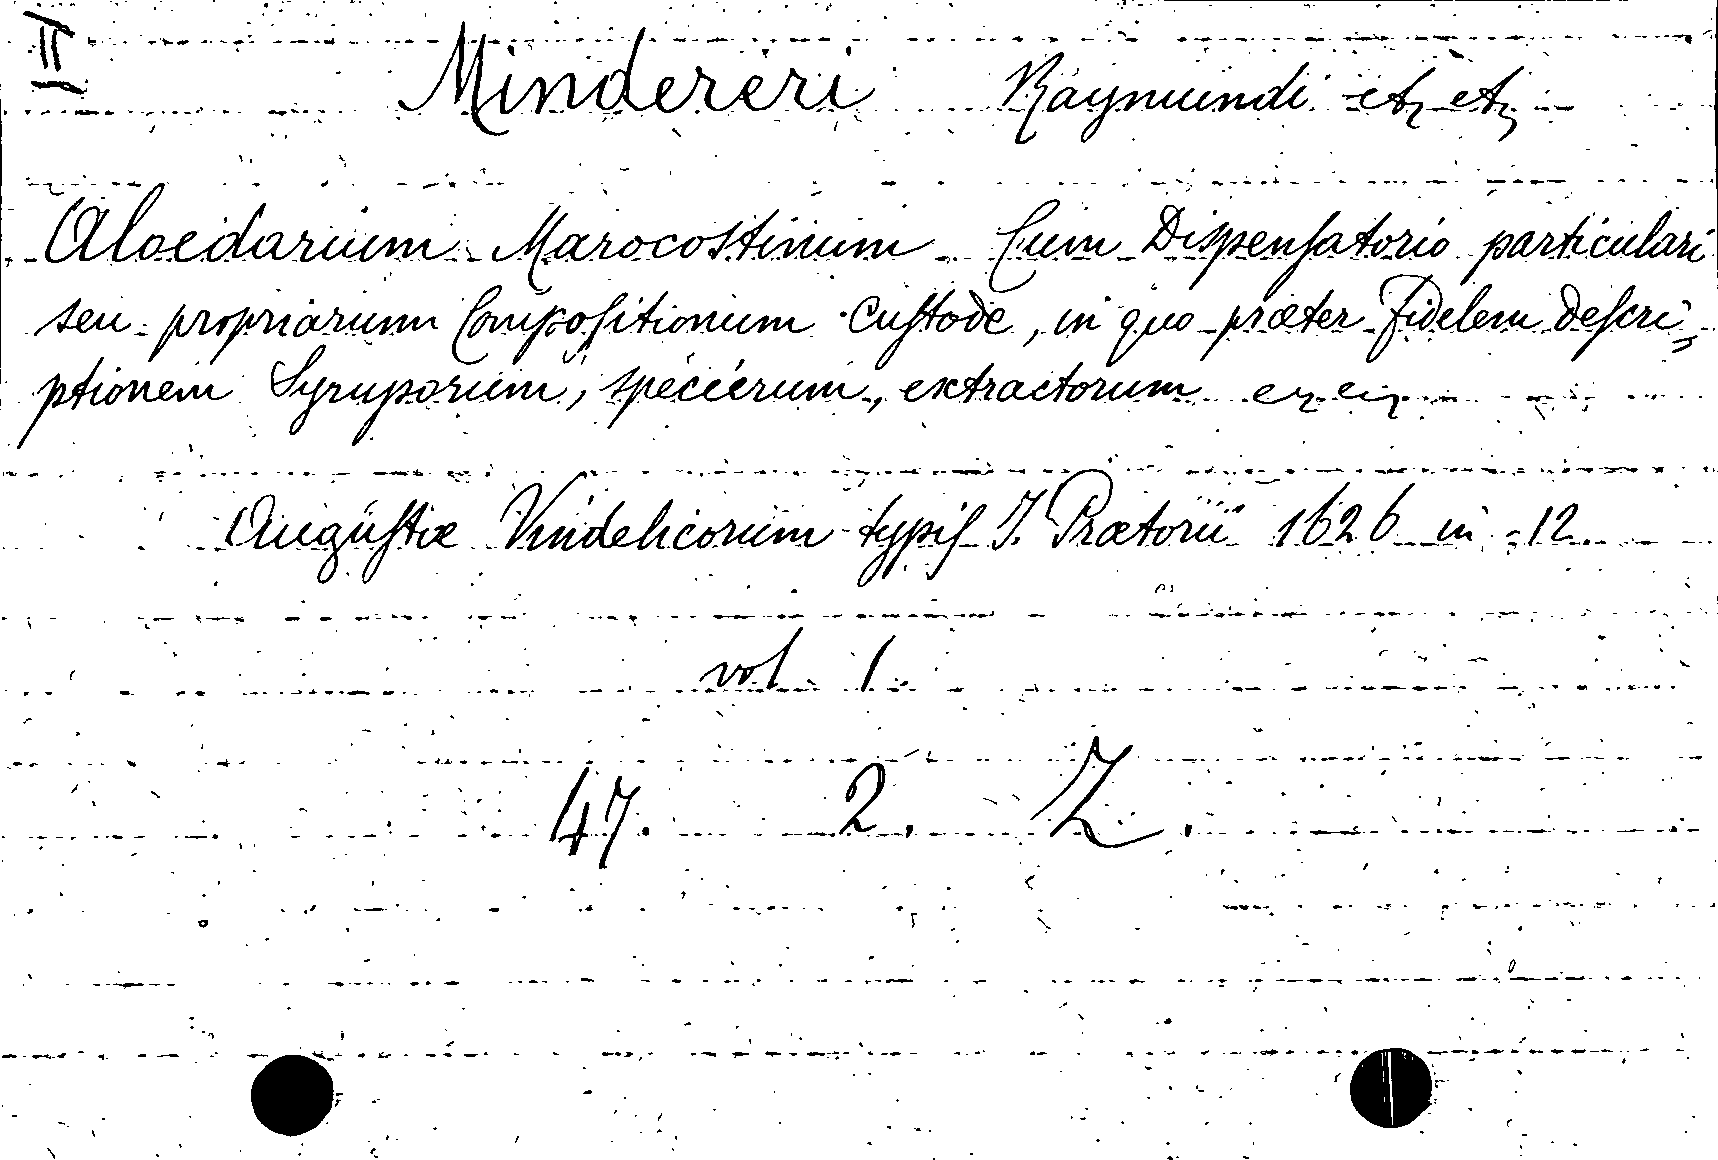 II
Mindereri Raymundi etz etz
Aloedarium Marocostinum Cum Dispenſatorio particulari
seu propriarum Compoſitionum Cuſtode, in quo præter Fidelem Deſcri„
ptionem Syruporum, specierum, extractorum ez ez
Auguſtæ Vindelicorum typiſ J. Prætorii 1626 in 12.
vol 1.
47. 2. Z.